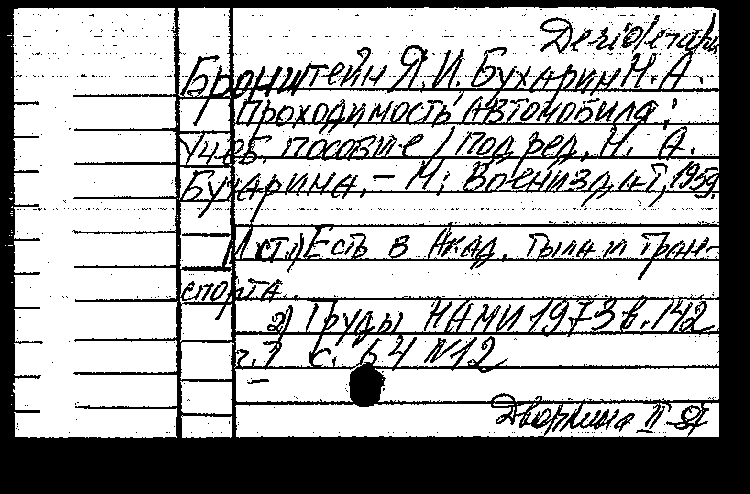 Desiderata
Бронштейн Я.И., Бухарин Н.А.
Проходимость автомобиля:
Учеб. пособие / Под ред. Н. А.
Бухарина. – М: Воениздат, 1959.
Ист. 1) Есть в Акад. тыла и тран-
спорта.
2) Труды НАМИ 1973 в. 142
с. 64 N12
Дворкина II-87